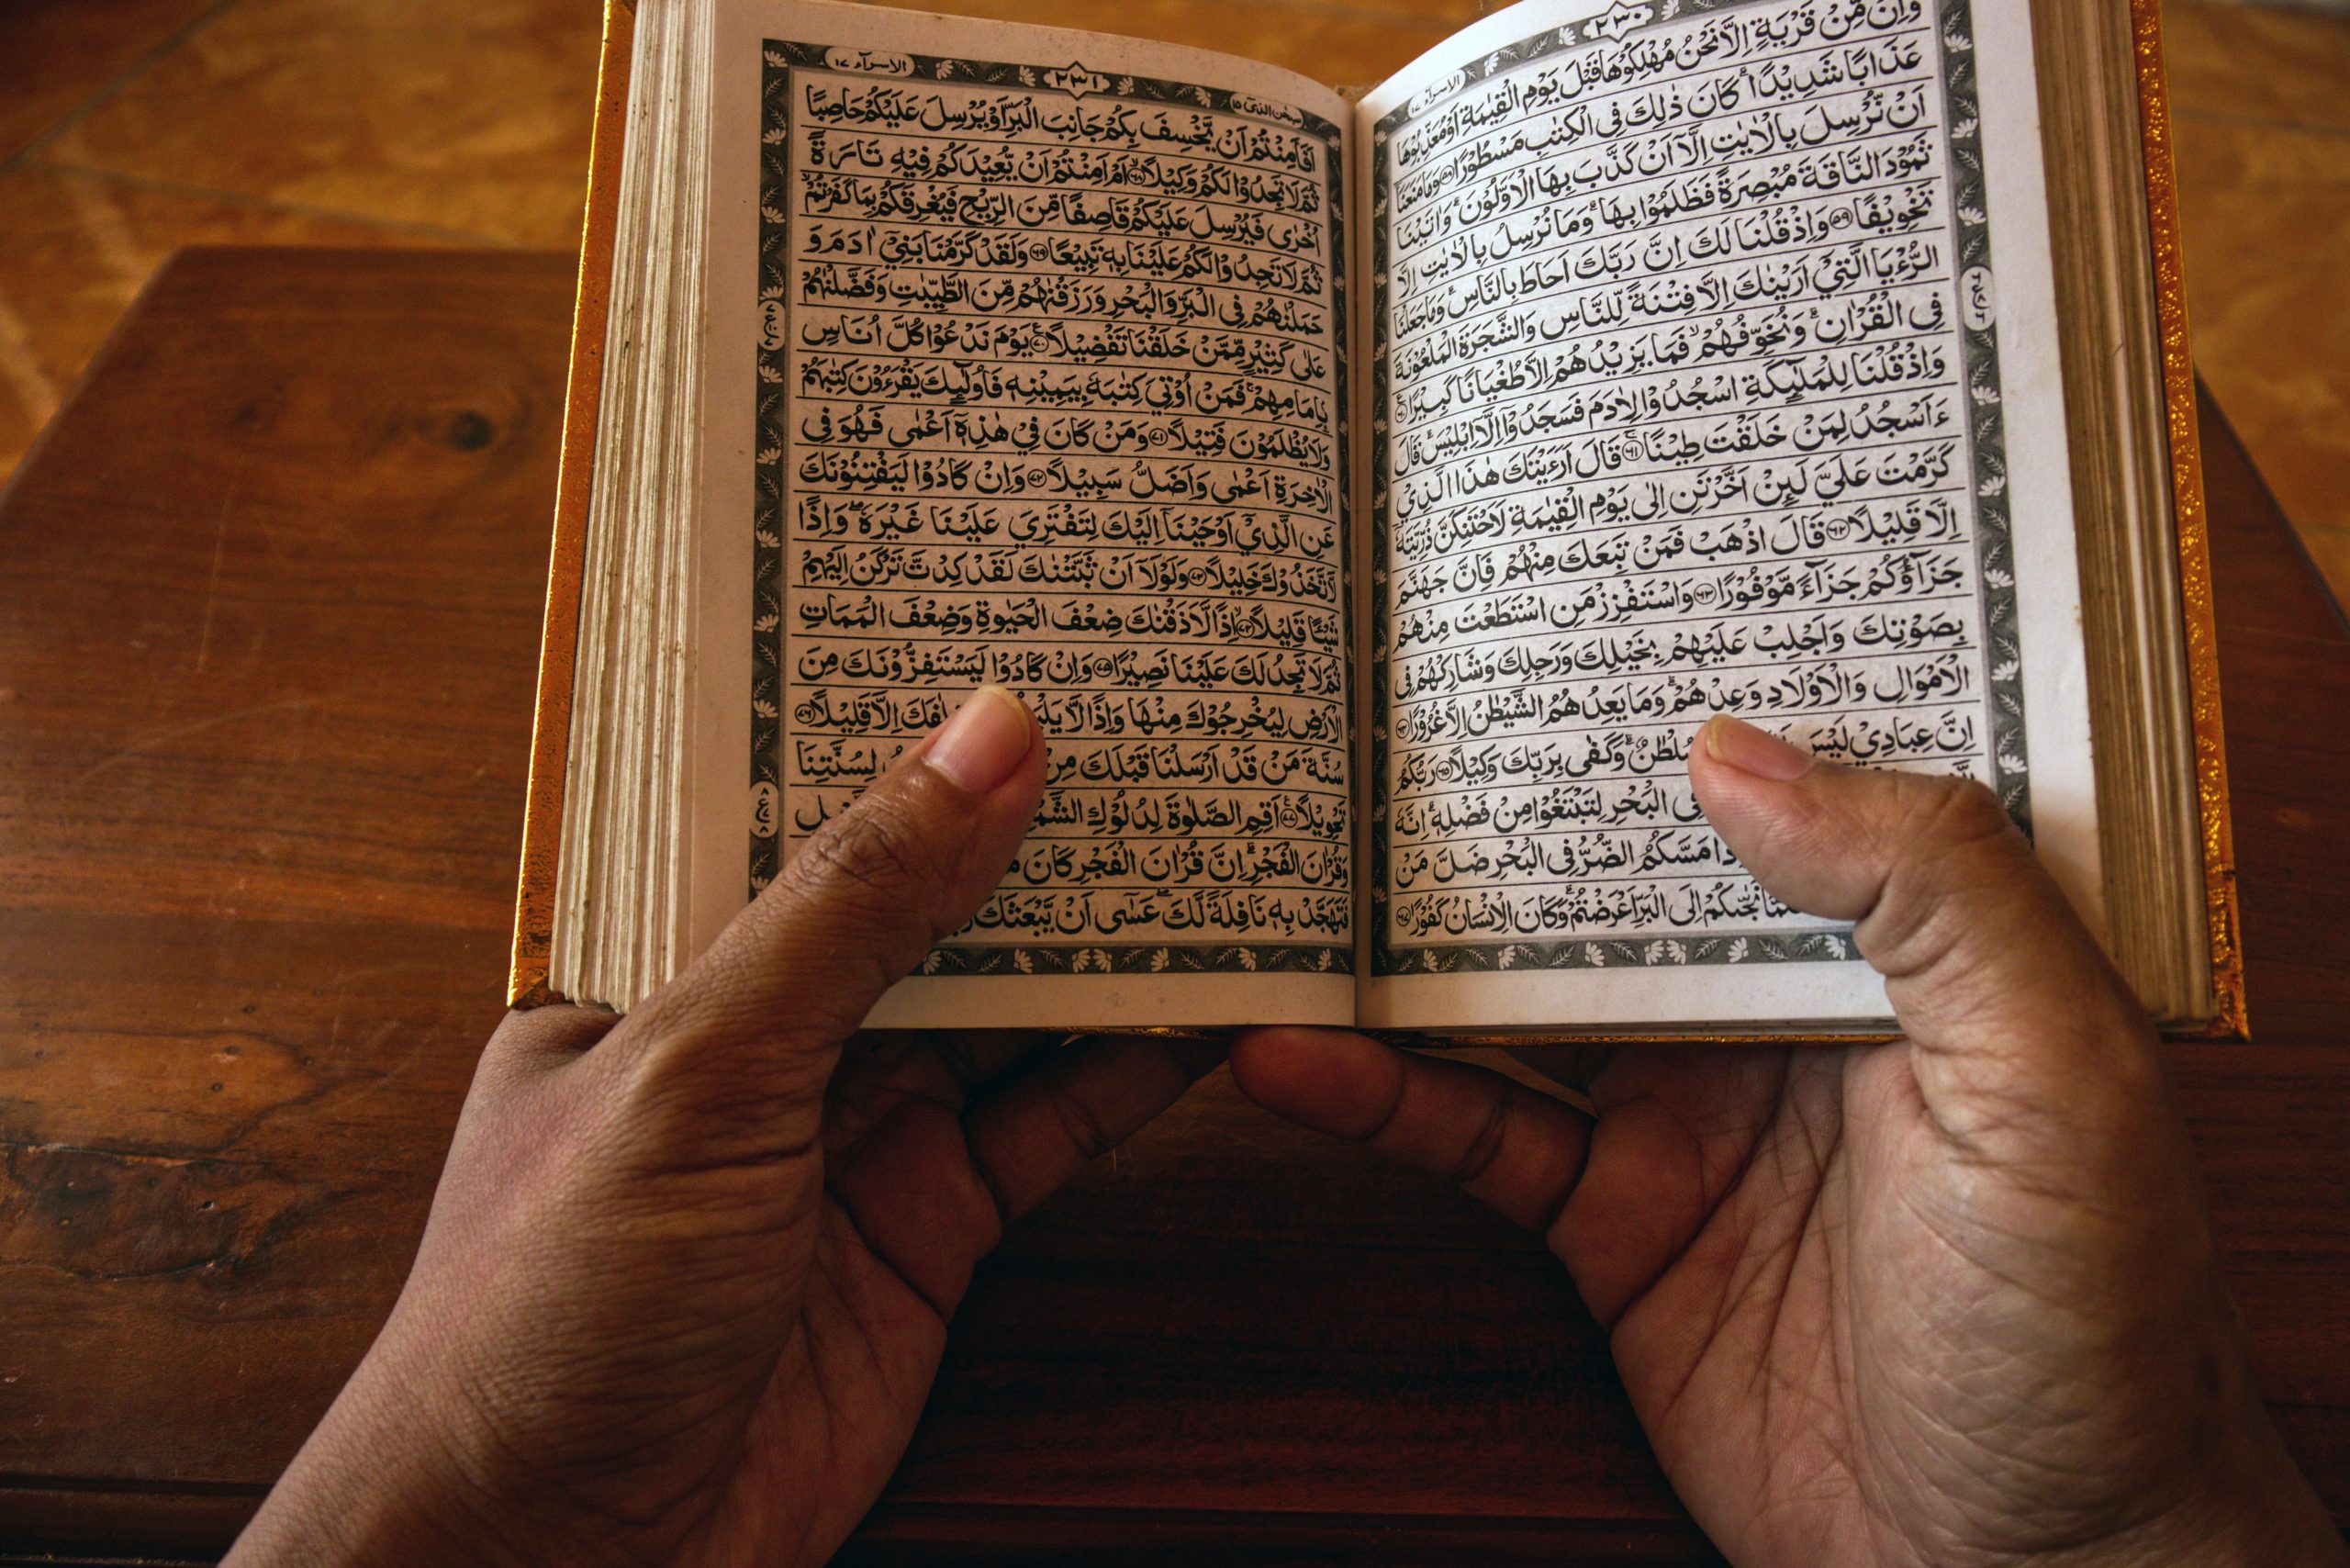 ٢٣٠
الاسرآء ١٧
وَاِنْ مِّنْ قَرْيَةٍ اِلَّا نَحْنُ مُهْلِكُوْهَا قَبْلَ يَوْمِ الْقِيٰمَةِ اَوْ مُعَذِّبُوْهَا
عَذَابًا شَدِيْدًا ۗ كَانَ ذٰلِكَ فِى الْكِتٰبِ مَسْطُوْرًا ٥٨ وَمَا مَنَعَنَآ
اَنْ نُّرْسِلَ بِالْاٰيٰتِ اِلَّآ اَنْ كَذَّبَ بِهَا الْاَوَّلُوْنَ ۗ وَاٰتَيْنَا
ثَمُوْدَ النَّاقَةَ مُبْصِرَةً فَظَلَمُوْا بِهَا ۗ وَمَا نُرْسِلُ بِالْاٰيٰتِ اِلَّا
تَخْوِيْفًا ٥٩ وَاِذْ قُلْنَا لَكَ اِنَّ رَبَّكَ اَحَاطَ بِالنَّاسِ ۗ وَمَا جَعَلْنَا
الرُّءْيَا الَّتِيْٓ اَرَيْنٰكَ اِلَّا فِتْنَةً لِّلنَّاسِ وَالشَّجَرَةَ الْمَلْعُوْنَةَ
فِى الْقُرْاٰنِ ۗ وَنُخَوِّفُهُمْ ۙ فَمَا يَزِيْدُهُمْ اِلَّا طُغْيَانًا كَبِيْرًا ٦٠
وَاِذْ قُلْنَا لِلْمَلٰٓئِكَةِ اسْجُدُوْا لِاٰدَمَ فَسَجَدُوْٓا اِلَّآ اِبْلِيْسَ ۗ قَالَ
ءَاَسْجُدُ لِمَنْ خَلَقْتَ طِيْنًا ٦١ قَالَ اَرَءَيْتَكَ هٰذَا الَّذِيْ
كَرَّمْتَ عَلَيَّ لَئِنْ اَخَّرْتَنِ اِلٰى يَوْمِ الْقِيٰمَةِ لَاَحْتَنِكَنَّ ذُرِّيَّتَهٗٓ
اِلَّا قَلِيْلًا ٦٢ قَالَ اذْهَبْ فَمَنْ تَبِعَكَ مِنْهُمْ فَاِنَّ جَهَنَّمَ
جَزَآؤُكُمْ جَزَآءً مَّوْفُوْرًا ٦٣ وَاسْتَفْزِزْ مَنِ اسْتَطَعْتَ مِنْهُمْ
بِصَوْتِكَ وَاَجْلِبْ عَلَيْهِمْ بِخَيْلِكَ وَرَجِلِكَ وَشَارِكْهُمْ فِى
الْاَمْوَالِ وَالْاَوْلَادِ وَعِدْهُمْ ۗ وَمَا يَعِدُهُمُ الشَّيْطٰنُ اِلَّا غُرُوْرًا ٦٤
اِنَّ عِبَادِيْ لَيْسَ سُلْطٰنٌ ۗ وَكَفٰى بِرَبِّكَ وَكِيْلًا ٦٥ رَبُّكُمُ
فِى الْبَحْرِ لِتَبْتَغُوْا مِنْ فَضْلِهٖ ۗ اِنَّهٗ
مَسَّكُمُ الضُّرُّ فِى الْبَحْرِ ضَلَّ مَنْ
نَجّٰىكُمْ اِلَى الْبَرِّ اَعْرَضْتُمْ ۗ وَكَانَ الْاِنْسَانُ كَفُوْرًا ٦٧
سبحٰن الذيٓ ١٥
٢٣١
الاسرآء ١٧
اَفَاَمِنْتُمْ اَنْ يَّخْسِفَ بِكُمْ جَانِبَ الْبَرِّ اَوْ يُرْسِلَ عَلَيْكُمْ حَاصِبًا
ثُمَّ لَا تَجِدُوْا لَكُمْ وَكِيْلًا ۙ ٦٨ اَمْ اَمِنْتُمْ اَنْ يُّعِيْدَكُمْ فِيْهِ تَارَةً
اُخْرٰى فَيُرْسِلَ عَلَيْكُمْ قَاصِفًا مِّنَ الرِّيْحِ فَيُغْرِقَكُمْ بِمَا كَفَرْتُمْ ۙ
ثُمَّ لَا تَجِدُوْا لَكُمْ عَلَيْنَا بِهٖ تَبِيْعًا ٦٩ وَلَقَدْ كَرَّمْنَا بَنِيْٓ اٰدَمَ وَ
حَمَلْنٰهُمْ فِى الْبَرِّ وَالْبَحْرِ وَرَزَقْنٰهُمْ مِّنَ الطَّيِّبٰتِ وَفَضَّلْنٰهُمْ
عَلٰى كَثِيْرٍ مِّمَّنْ خَلَقْنَا تَفْضِيْلًا ٧٠ يَوْمَ نَدْعُوْا كُلَّ اُنَاسٍۢ
بِاِمَامِهِمْ ۚ فَمَنْ اُوْتِيَ كِتٰبَهٗ بِيَمِيْنِهٖ فَاُولٰٓئِكَ يَقْرَءُوْنَ كِتٰبَهُمْ
وَلَا يُظْلَمُوْنَ فَتِيْلًا ٧١ وَمَنْ كَانَ فِيْ هٰذِهٖٓ اَعْمٰى فَهُوَ فِى
الْاٰخِرَةِ اَعْمٰى وَاَضَلُّ سَبِيْلًا ٧٢ وَاِنْ كَادُوْا لَيَفْتِنُوْنَكَ
عَنِ الَّذِيْٓ اَوْحَيْنَآ اِلَيْكَ لِتَفْتَرِيَ عَلَيْنَا غَيْرَهٗ ۖ وَاِذًا
لَّاتَّخَذُوْكَ خَلِيْلًا ٧٣ وَلَوْلَآ اَنْ ثَبَّتْنٰكَ لَقَدْ كِدْتَّ تَرْكَنُ اِلَيْهِمْ
شَيْـًٔا قَلِيْلًا ۙ ٧٤ اِذًا لَّاَذَقْنٰكَ ضِعْفَ الْحَيٰوةِ وَضِعْفَ الْمَمَاتِ
ثُمَّ لَا تَجِدُ لَكَ عَلَيْنَا نَصِيْرًا ٧٥ وَاِنْ كَادُوْا لَيَسْتَفِزُّوْنَكَ مِنَ
الْاَرْضِ لِيُخْرِجُوْكَ مِنْهَا وَاِذًا لَّا اِلَّا قَلِيْلًا ٧٦
سُنَّةَ مَنْ قَدْ اَرْسَلْنَا قَبْلَكَ مِنْ لِسُنَّتِنَا
تَحْوِيْلًا ٧٧ اَقِمِ الصَّلٰوةَ لِدُلُوْكِ
وَقُرْاٰنَ الْفَجْرِ ۗ اِنَّ قُرْاٰنَ الْفَجْرِ كَانَ
فَتَهَجَّدْ بِهٖ نَافِلَةً لَّكَ ۖ عَسٰٓى اَنْ يَّبْعَثَكَ